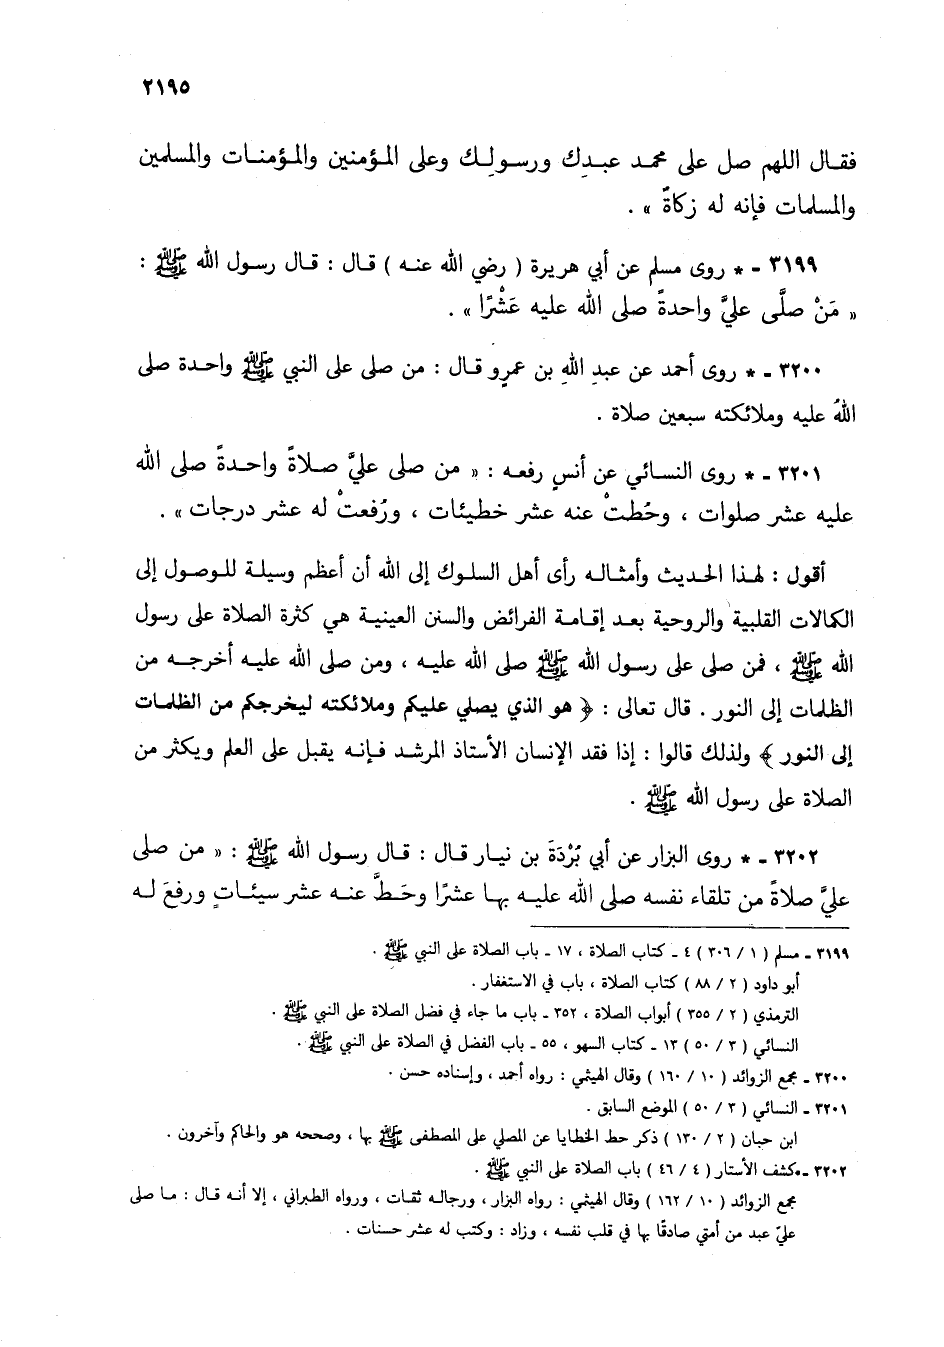 ٢١٩٥
فقال اللهم صل على محمد عبدِك ورسولِك وعلى المؤمنين والمؤمنات والمسلمين
والمسلمات فإنه له زكاةً » .
٣١٩٩ - * روى مسلم عن أبي هريرة ( رضي الله عنه ) قال : قال رسول الله ﷺ :
« مَنْ صلَّى عليَّ واحدةً صلى الله عليه عَشْرًا » .
٣٢٠٠ - * روى أحمد عن عبدِ اللهِ بن عمرٍو قال : من صلى على النبي ﷺ واحدة صلى
اللهُ عليه وملائكته سبعين صلاة .
٣٢٠١ - * روى النسائي عن أنسٍ رفعه : « من صلى عليَّ صلاةً واحدةً صلى الله
عليه عشر صلوات ، وحُطتْ عنه عشر خطيئات ، ورُفعتْ له عشر درجات » .
أقول : لهذا الحديث وأمثاله رأى أهل السلوك إلى الله أن أعظم وسيلة للوصول إلى
الكمالات القلبية والروحية بعد إقامة الفرائض والسنن العينية هي كثرة الصلاة على رسول
الله ﷺ ، فمن صلى على رسول الله ﷺ صلى الله عليه ، ومن صلى الله عليه أخرجه من
الظلمات إلى النور . قال تعالى : ﴿ هو الذي يصلي عليكم وملائكته ليخرجكم من الظلمات
إلى النور ﴾ ولذلك قالوا : إذا فقد الإنسان الأستاذ المرشد فإنه يقبل على العلم ويكثر من
الصلاة على رسول الله ﷺ .
٣٢٠٢ - * روى البزار عن أبي بُرْدَةَ بن نيار قال : قال رسول الله ﷺ : « من صلى
عليَّ صلاةً من تلقاء نفسه صلى الله عليه بها عشرًا وحَطَّ عنه عشر سيئاتٍ ورفعَ له
٣١٩٩ - مسلم ( ١ / ٣٠٦ ) ٤ - كتاب الصلاة ، ١٧ - باب الصلاة على النبي ﷺ .
أبو داود ( ٢ / ٨٨ ) كتاب الصلاة ، باب في الاستغفار .
الترمذي ( ٢ / ٣٥٥ ) أبواب الصلاة ، ٣٥٢ - باب ما جاء في فضل الصلاة على النبي ﷺ .
النسائي ( ٣ / ٥٠ ) ١٣ - كتاب السهو ، ٥٥ - باب الفضل في الصلاة على النبي ﷺ .
٣٢٠٠ - مجمع الزوائد ( ١٠ / ١٦٠ ) وقال الهيثمي : رواه أحمد ، وإسناده حسن .
٣٢٠١ - النسائي ( ٣ / ٥٠ ) الموضع السابق .
ابن حبان ( ٢ / ١٣٠ ) ذكر حط الخطايا عن المصلي على المصطفى ﷺ بها ، وصححه هو والحاكم وآخرون .
٣٢٠٢ - كشف الأستار ( ٤ / ٤٦ ) باب الصلاة على النبي ﷺ .
مجمع الزوائد ( ١٠ / ١٦٢ ) وقال الهيثمي : رواه البزار ، ورجاله ثقات ، ورواه الطبراني ، إلا أنه قال : ما صلى
عليّ عبد من أمتي صادقًا بها في قلب نفسه ، وزاد : وكتب له عشر حسنات .